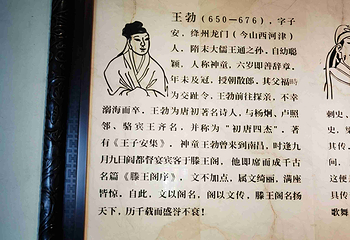 王勃(650—676),字子
安,绛州龙门(今山西河津)
人,隋末大儒王通之孙,自幼聪
颖,人称神童,六岁即善辞章,
年未及冠,授朝散郎,其父福畤
为交趾令,王勃前往探亲,不幸
溺海而卒,王勃为唐初著名诗人,与杨炯、卢照
邻、骆宾王齐名,并称为“初唐四杰”,著
有《王子安集》,神童王勃曾来到南昌,时逢九
月九日阎都督宴宾客于滕王阁,他即席而成千古
名篇《滕王阁序》,文不加点,属文绮丽,满座
皆惊,自此,文以阁名,阁以文传,滕王阁名扬
天下,历千载而盛誉不衰!
刺史、
梁史
其传
间,
这便
具传
歌舞